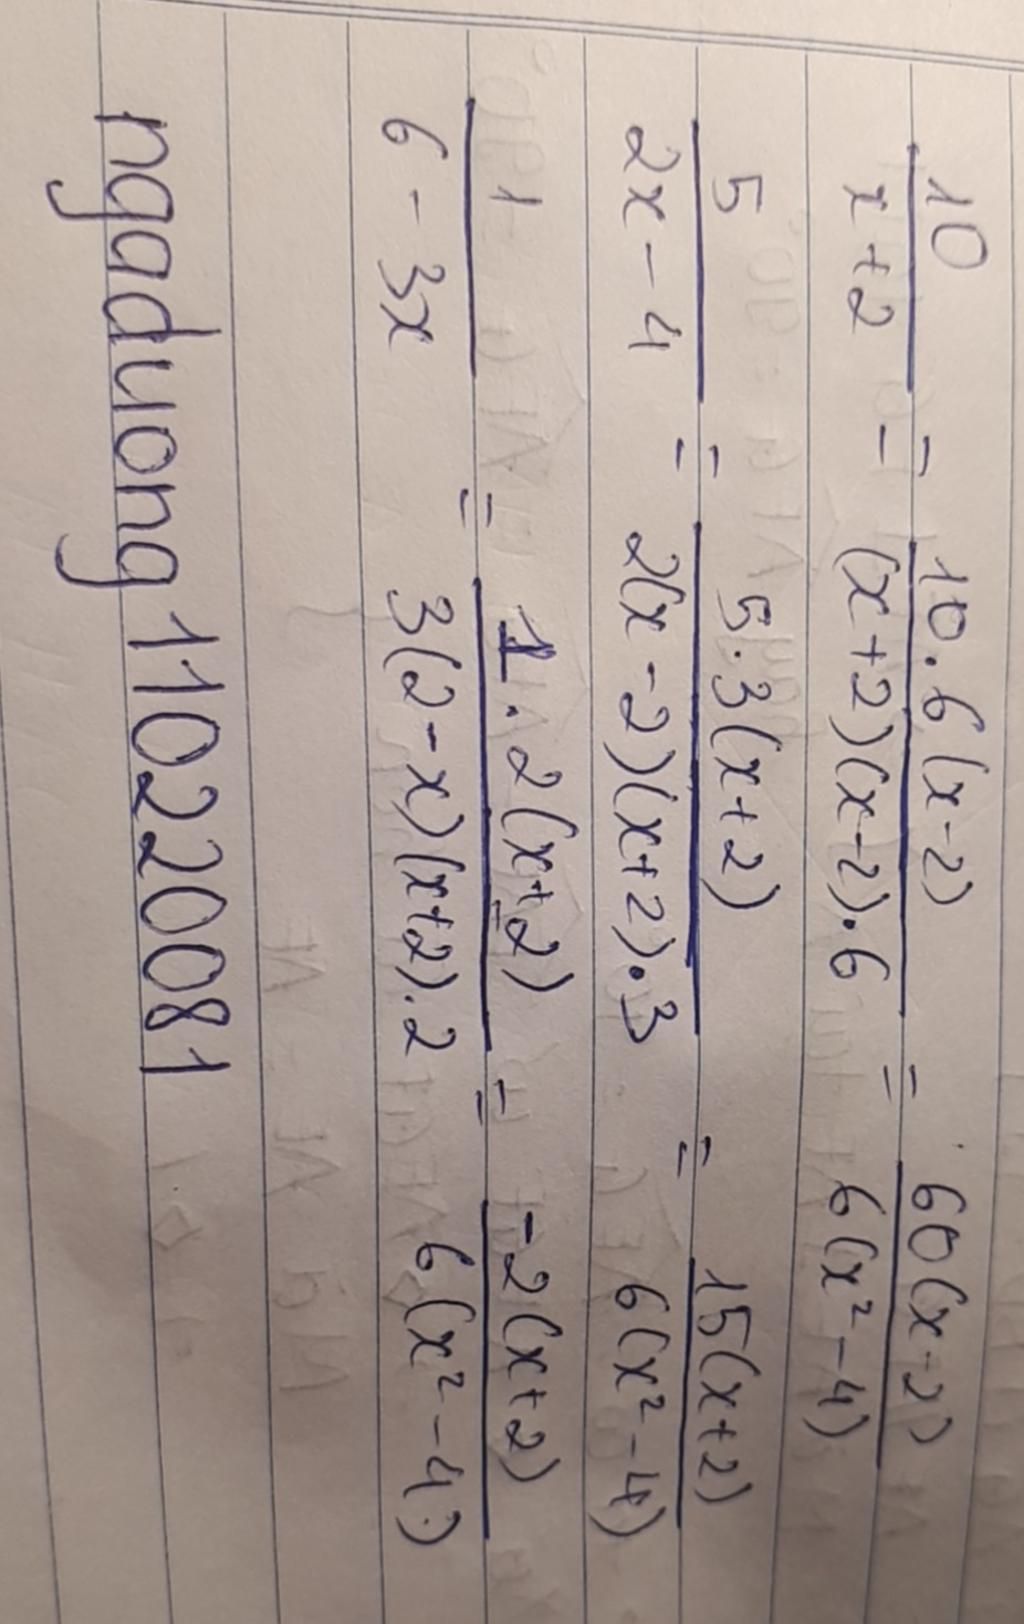 10/(x+2) = 10.6(x-2)/((x+2)(x-2).6) = 60(x-2)/(6(x²-4))
5/(2x-4) = 5.3(x+2)/(2(x-2)(x+2).3) = 15(x+2)/(6(x²-4))
1/(6-3x) = 1.2(x+2)/(3(2-x)(x+2).2) = -2(x+2)/(6(x²-4))
ngaduong110220081